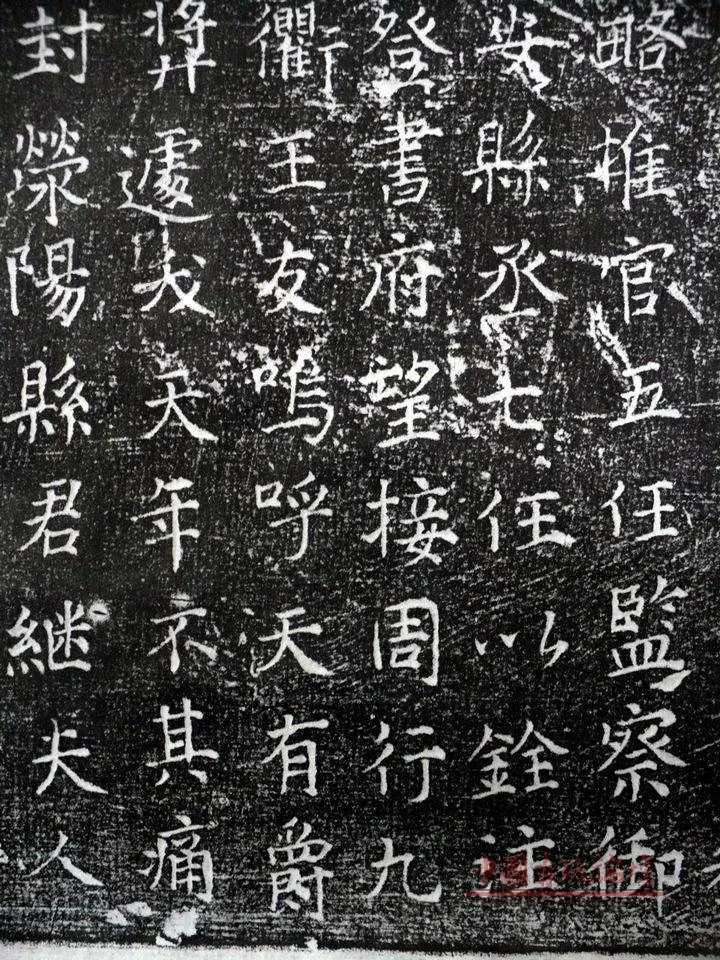 略推官五任監察御
安縣丞七任以銓注
登書府望接周行九
衢王友嗚呼天有爵
奬遽夭天年不其痛
封滎陽縣君継夫人